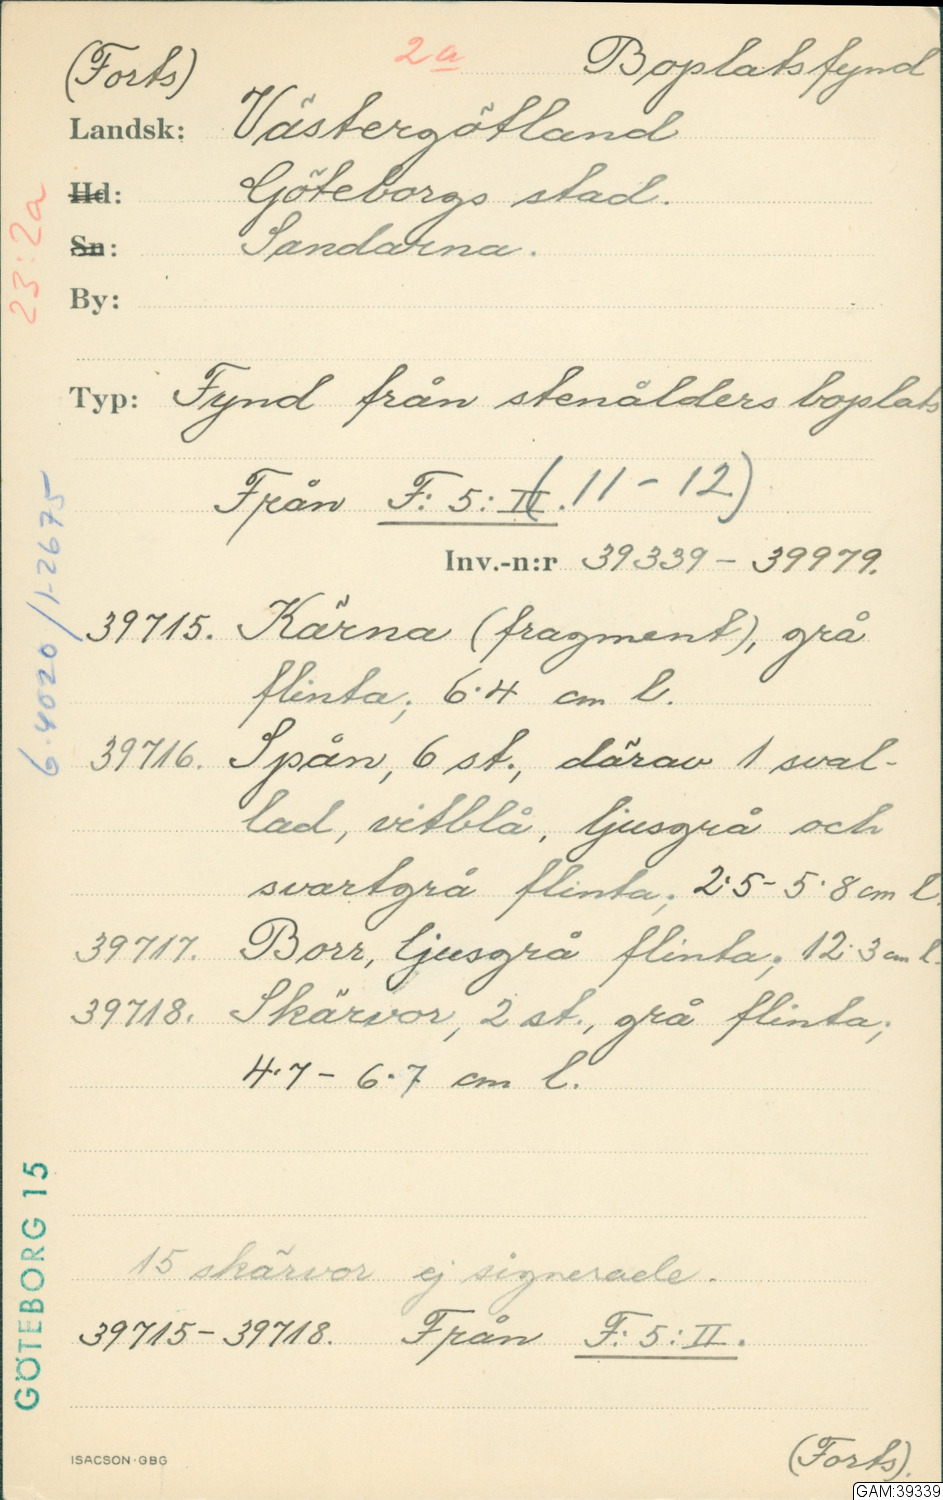 (Forts) 2a Boplatsfynd
Landsk: Västergötland
Hd: Göteborgs stad.
Sn: Sandarna.
By:
23:2a
Typ: Fynd från stenålders boplats
Från F: 5: II. (11-12)
Inv.-n:r 39339 - 39979.
6.4020/1-2675
39715. Kärna (fragment), grå
flinta; 6·4 cm l.
39716. Spån, 6 st., därav 1 sval-
lad, vitblå, ljusgrå och
svartgrå flinta; 2·5 - 5·8 cm l.
39717. Borr, ljusgrå flinta; 12·3 cm l.
39718. Skärvor, 2 st., grå flinta;
4·7 - 6·7 cm l.
15 skärvor ej signerade.
39715 - 39718. Från F: 5: II.
GÖTEBORG 15
ISACSON·GBG
(Forts).
GAM:39339